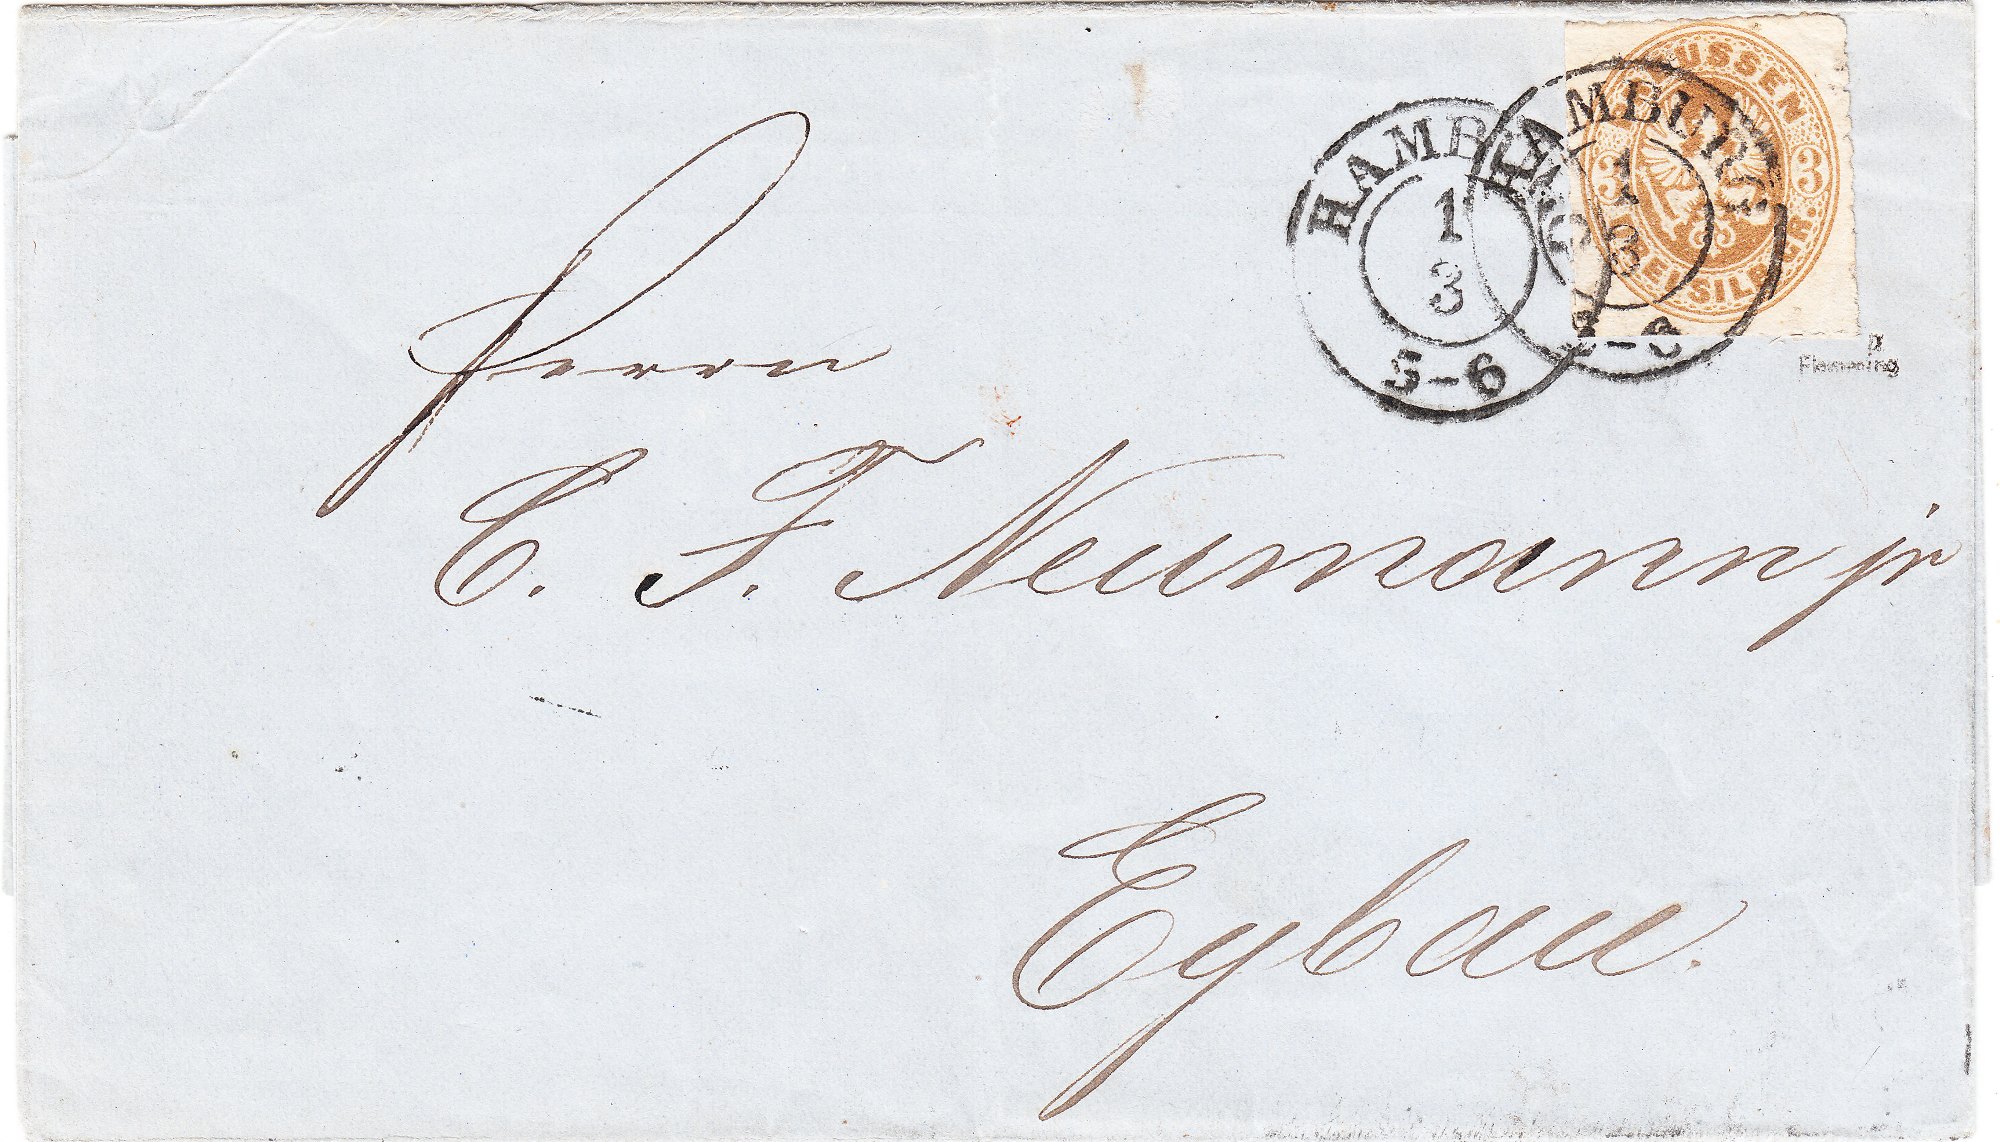 PREUSSEN
3 3
DREI SILB. GR.
HAMBURG
1
3
5-6
HAMBURG
1
3
5-6
Flemming
Herrn
C. F. Neumann jr
Eybau.